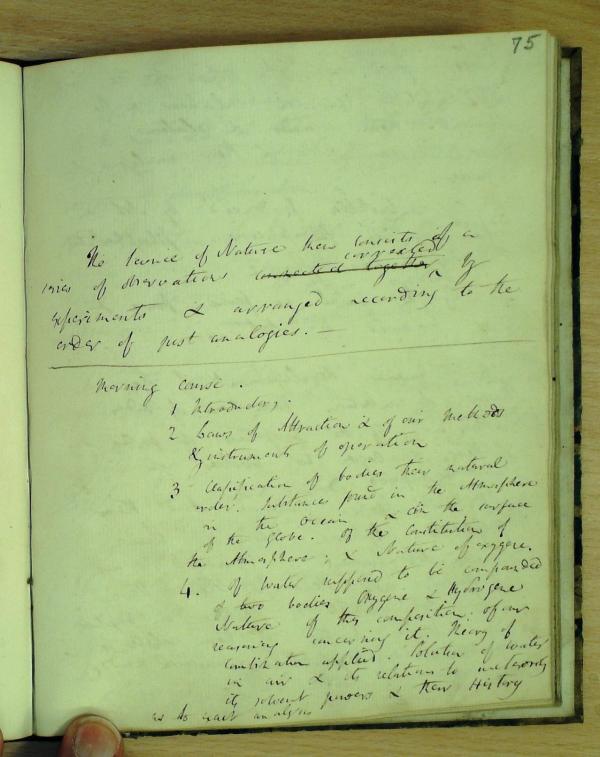 75
The Science of Nature then consists of a
series of observations connected together corrected by
experiments & arranged according to the
order of just analogies. —
Morning course.
1 Introductory.
2 Laws of Attraction & of our methods
& instruments of operation
3 Classification of bodies their natural
order. Substances found in the Atmosphere
in the Ocean & on the surface
of the Globe. Of the Constitution of
the Atmosphere; & Nature of oxygene.
4. Of water supposed to be compounded
of two bodies Oxygene & Hydrogene
Nature of this composition; of our
reasoning concerning it. Theory of
Combination applied. Solution of water
in air & its relations to meteorology
its solvent powers & their History
as to exact analysis